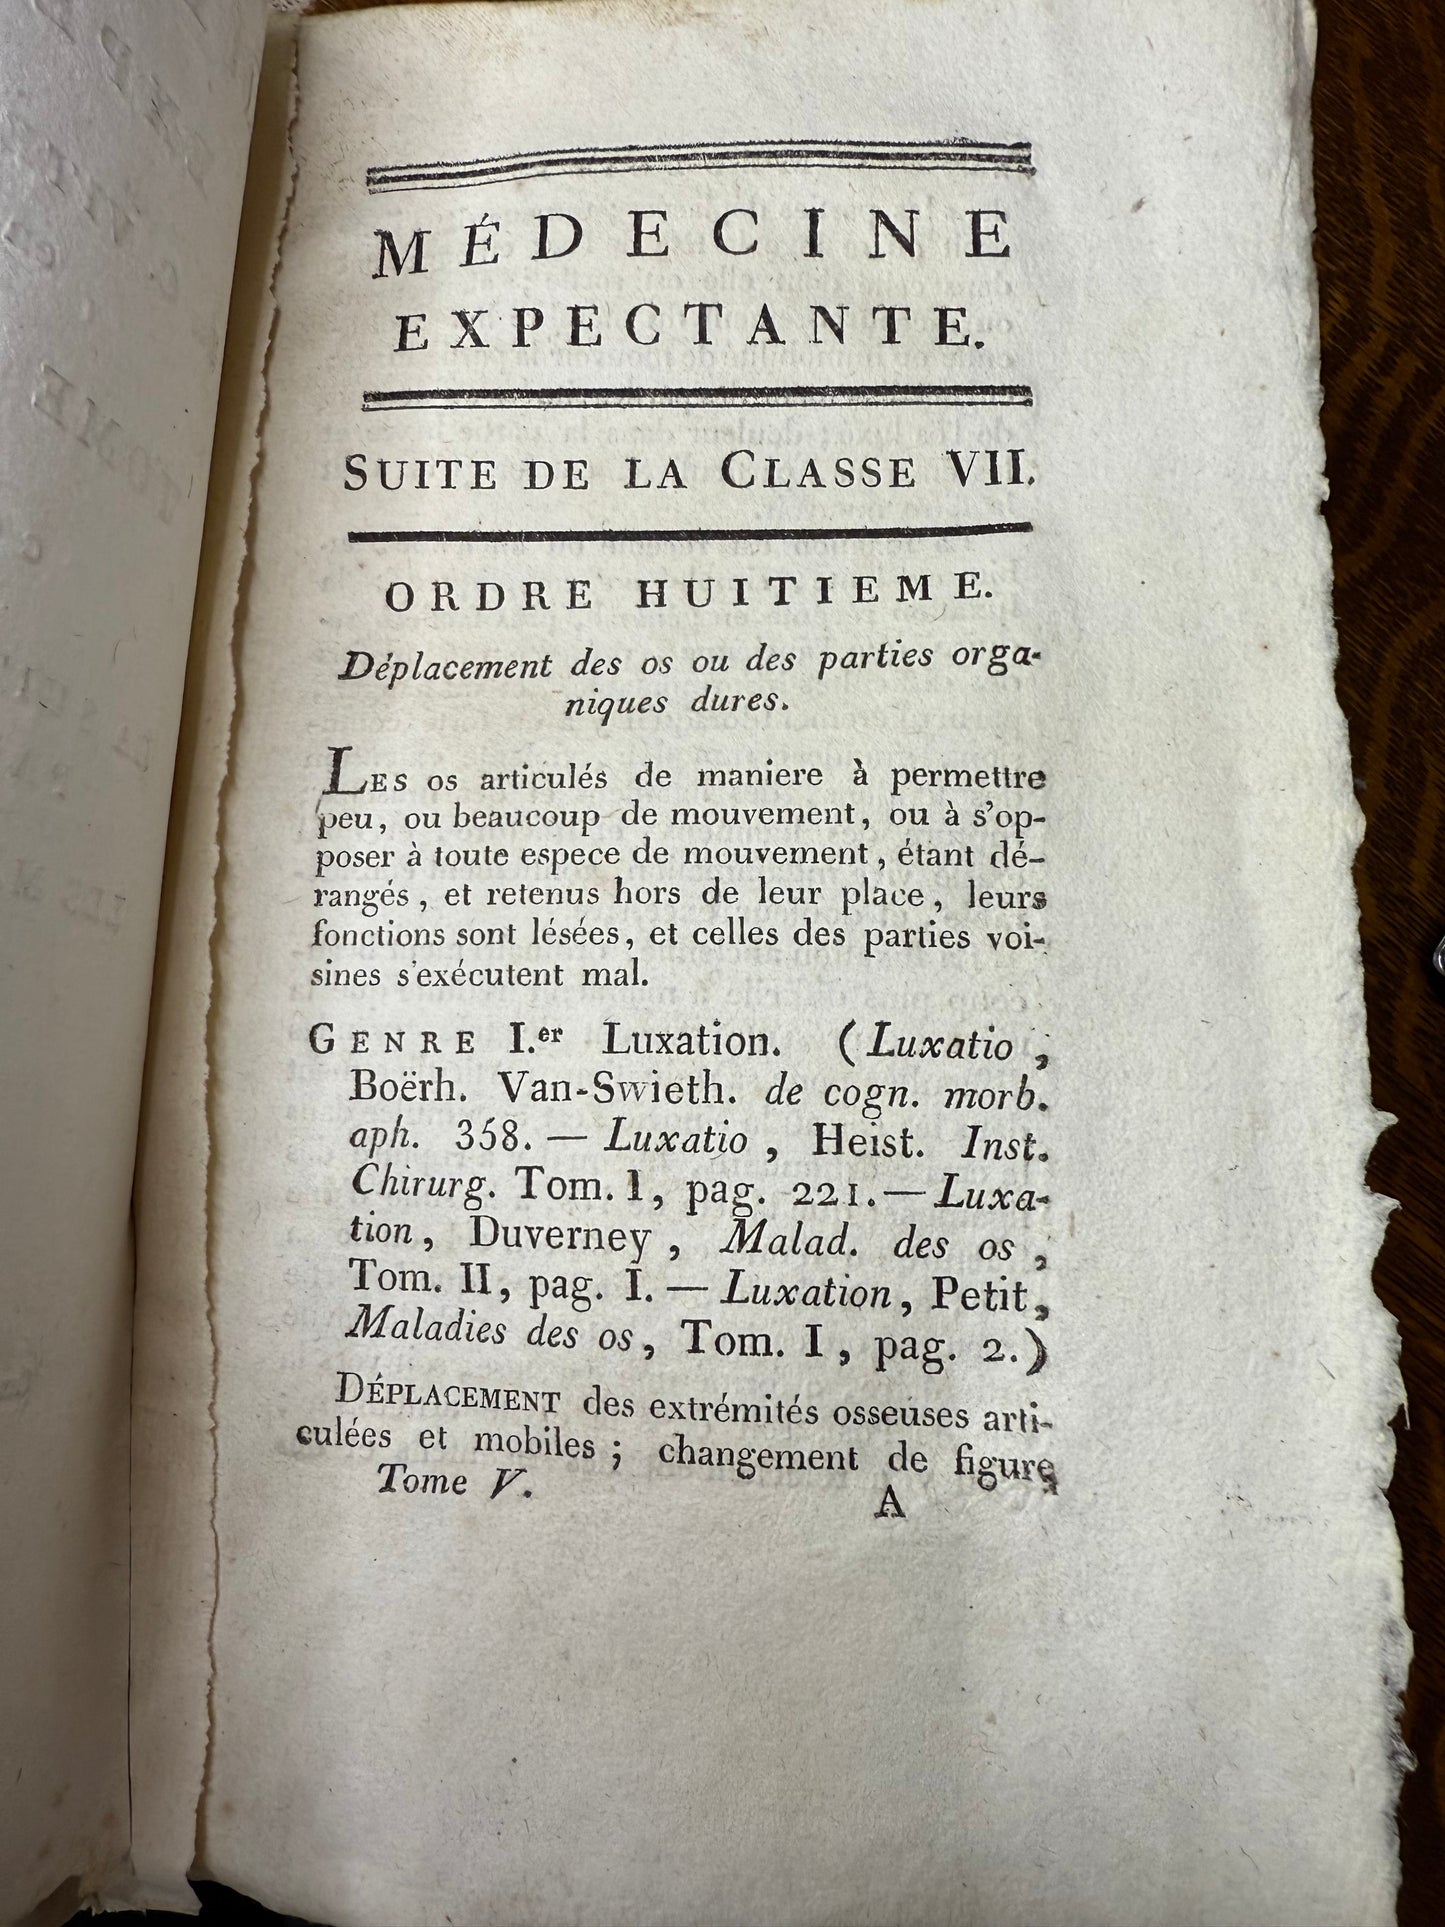 MÉDECINE
EXPECTANTE.
SUITE DE LA CLASSE VII.
ORDRE HUITIEME.
Déplacement des os ou des parties orga-
niques dures.
LES os articulés de maniere à permettre
peu, ou beaucoup de mouvement, ou à s'op-
poser à toute espece de mouvement, étant dé-
rangés, et retenus hors de leur place, leurs
fonctions sont lésées, et celles des parties voi-
sines s'exécutent mal.
GENRE I.er Luxation. (Luxatio,
Boërh. Van-Swieth. de cogn. morb.
aph. 358. — Luxatio, Heist. Inst.
Chirurg. Tom. I, pag. 221. — Luxa-
tion, Duverney, Malad. des os,
Tom. II, pag. I. — Luxation, Petit,
Maladies des os, Tom. I, pag. 2.)
DÉPLACEMENT des extrémités osseuses arti-
culées et mobiles; changement de figure
Tome V.
A